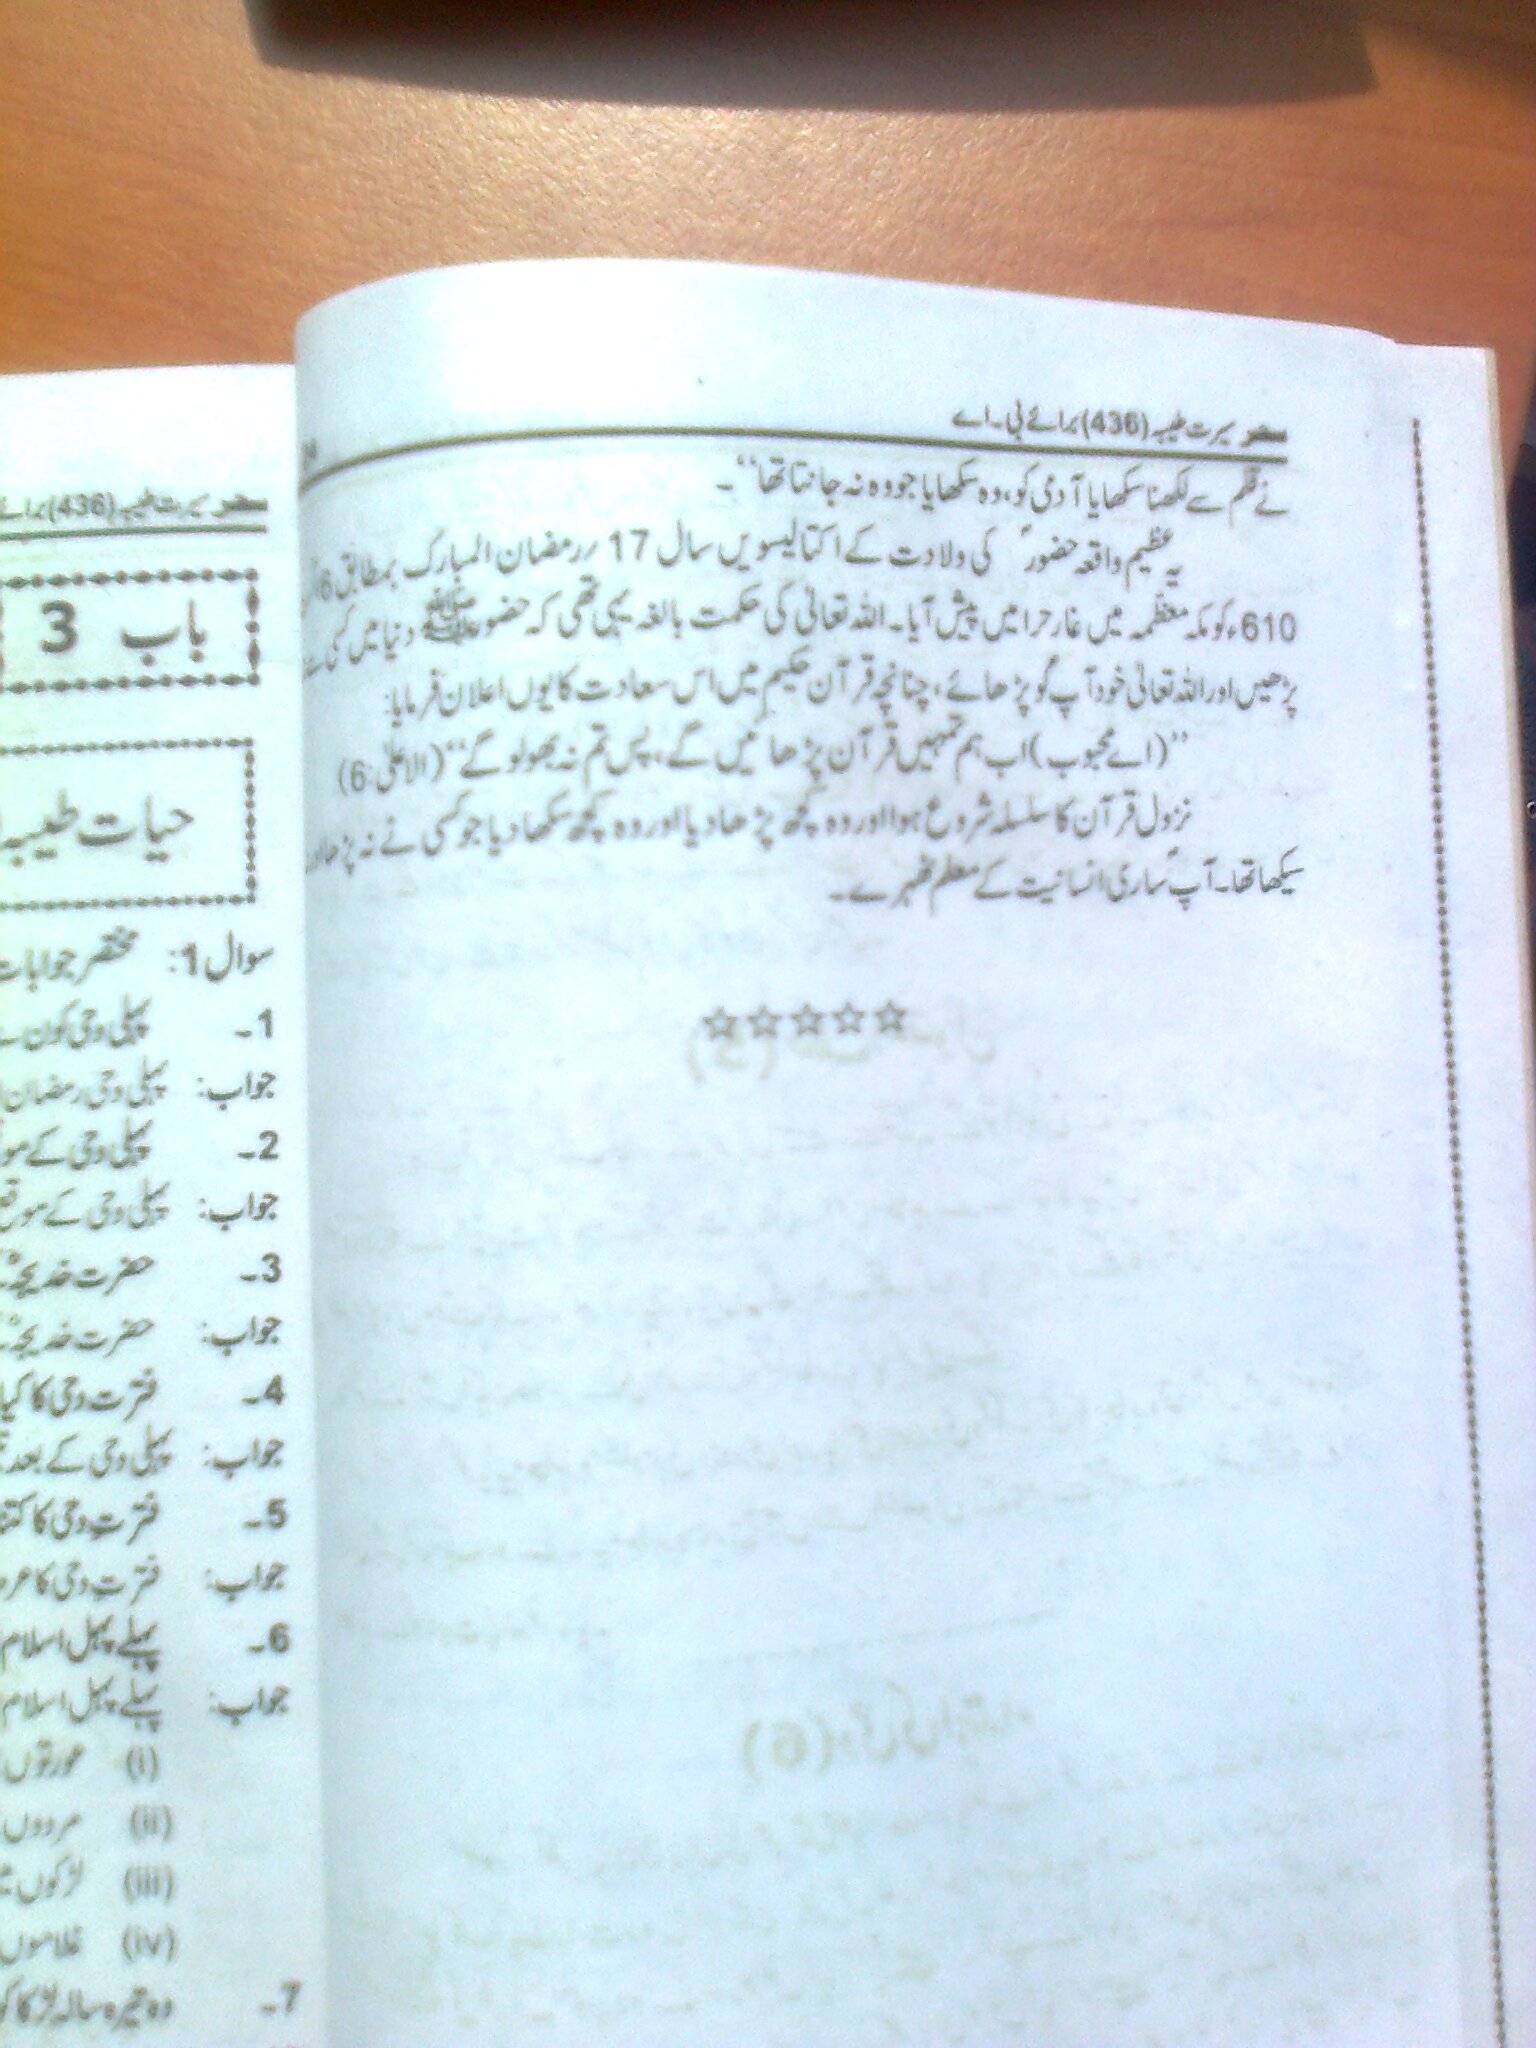 سیرت طیبہ (436) برائے بی۔اے
نے قلم سے لکھنا سکھایا آدمی کو، وہ سکھایا جو وہ نہ جانتا تھا‘‘۔
یہ عظیم واقعہ حضورؐ کی ولادت کے اکتالیسویں سال 17 رمضان المبارک بمطابق 6
610ء کو مکہ معظمہ میں غار حرا میں پیش آیا۔ اللہ تعالیٰ کی حکمت بالغہ یہی تھی کہ حضور ﷺ دنیا میں کسی سے
پڑھیں اور اللہ تعالیٰ خود آپؐ کو پڑھائے، چنانچہ قرآن حکیم میں اس سعادت کا یوں اعلان فرمایا:
’’(اے محبوب) اب ہم تمہیں قرآن پڑھائیں گے، پس تم نہ بھولو گے‘‘ (الاعلیٰ:6)
نزول قرآن کا سلسلہ شروع ہوا اور وہ کچھ پڑھا دیا اور وہ کچھ سکھا دیا جو کسی نے نہ پڑھا اور
سیکھا تھا۔ آپؐ ساری انسانیت کے معلم ٹھہرے۔
☆☆☆☆☆
سیرت طیبہ (436) برائے
باب 3
حیات طیبہ
سوال 1: مختصر جوابات
1۔ پہلی وحی کون
جواب: پہلی وحی رمضان
2۔ پہلی وحی کے
جواب: پہلی وحی کے موقع
3۔ حضرت خدیجہؓ
جواب: حضرت خدیجہؓ
4۔ فترت وحی کا کیا
جواب: پہلی وحی کے بعد
5۔ فترتِ وحی کا
جواب: فترتِ وحی کا
6۔ پہلے پہل اسلام
جواب: پہلے پہل اسلام
(i) عورتوں
(ii) مردوں
(iii) لڑکوں
(iv) غلاموں
7۔ وہ تیرہ سالہ لڑکا